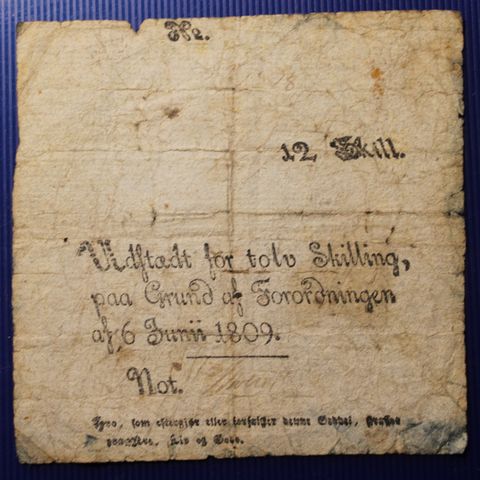 No.
12 Skill.
Udstædt for tolv Skilling,
paa Grund af Forordningen
af 6 Junii 1809.
Not.
Hvo, som eftergiør eller forfalsker denne Seddel, straffes
Liv og Gods.